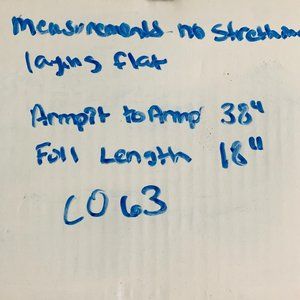 measurements no stretching
laying flat
Armpit to Armp 38"
Full Length 18"
CO 63